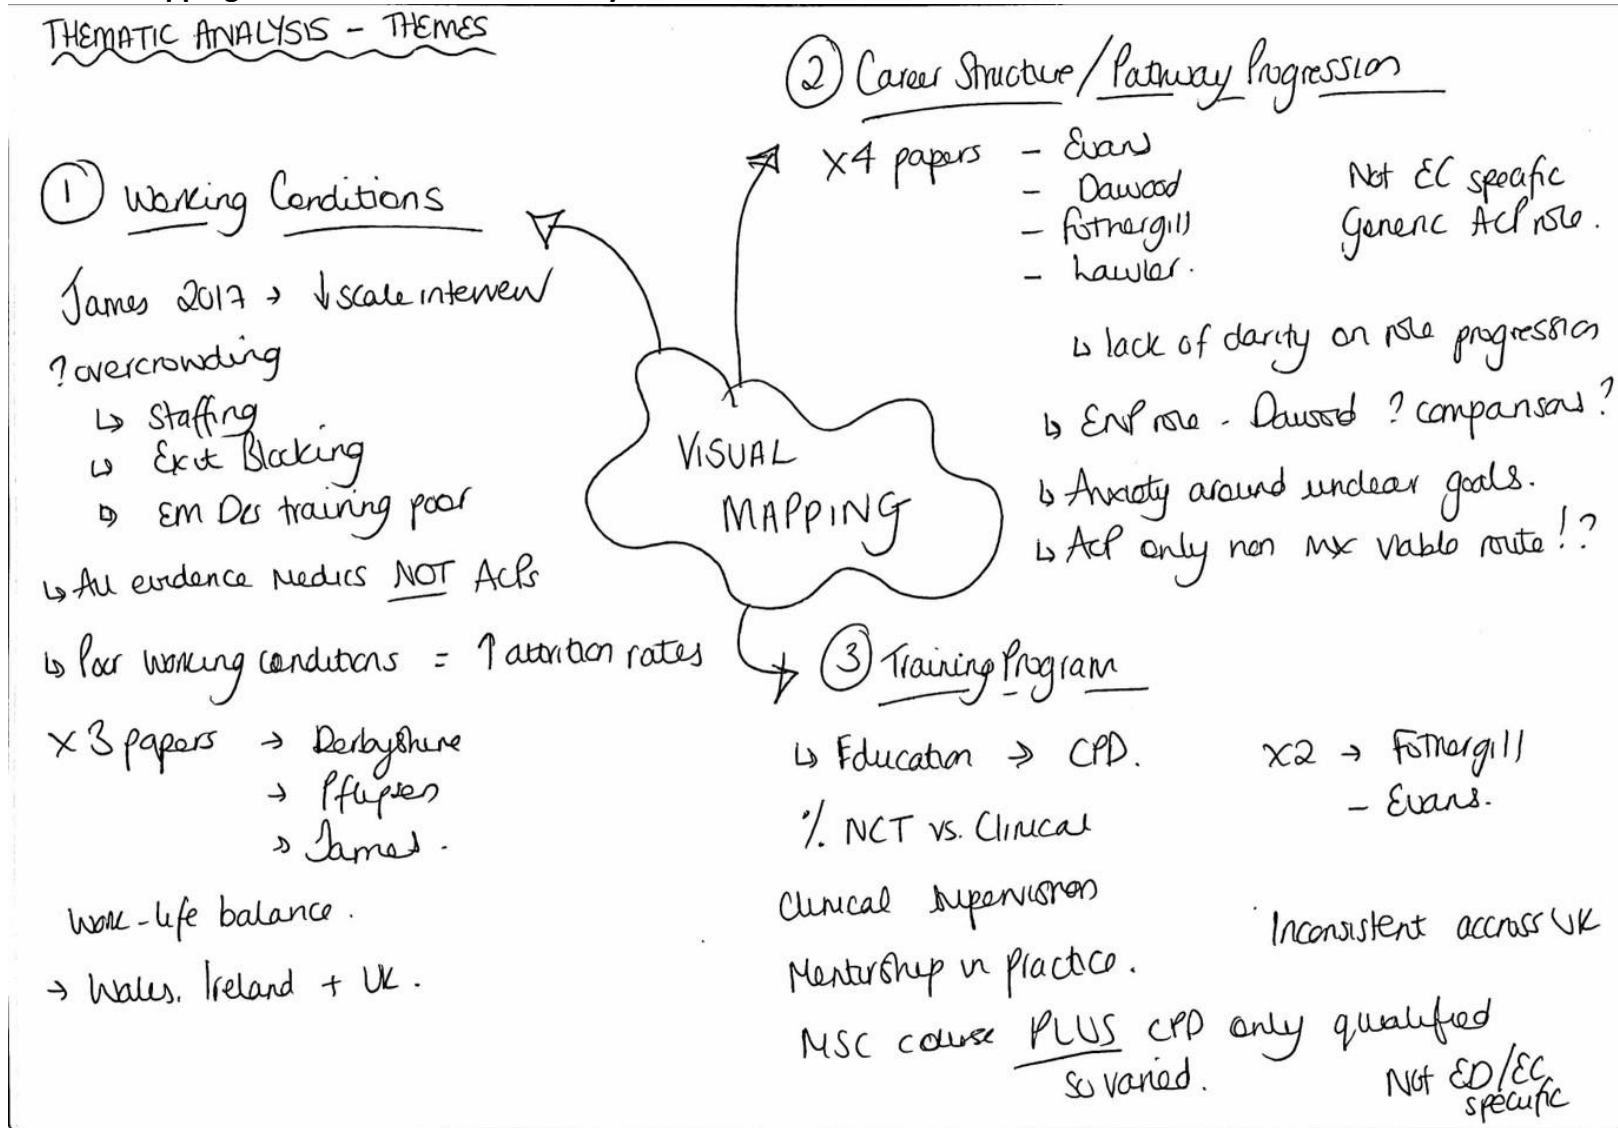 THEMATIC ANALYSIS - THEMES
① Working Conditions
James 2017 → ↓ scale interview
? overcrowding
↳ Staffing
↳ Exit Blocking
↳ EM Drs training poor
↳ All evidence medics NOT ACPs
↳ Poor working conditions = ↑ attrition rates
x3 papers → Derbyshire
→
→ James.
Work-life balance.
→ Wales, Ireland + UK.
VISUAL
MAPPING
② Career Structure/Pathway Progression
x4 papers - Evans
- Dawood
- Fothergill
- Lawler.
Not EC specific
Generic ACP role.
↳ lack of clarity on role progression
↳ ENP role - Dawood ? comparisons?
↳ Anxiety around unclear goals.
↳ ACP only non mx viable route!?
③ Training Program
↳ Education → CPD.
x2 → Fothergill
- Evans.
% NCT vs. Clinical
Clinical supervision
Mentorship in practice.
Inconsistent accross UK
MSC course PLUS CPD only qualified
so varied.
Not ED/EC
specific